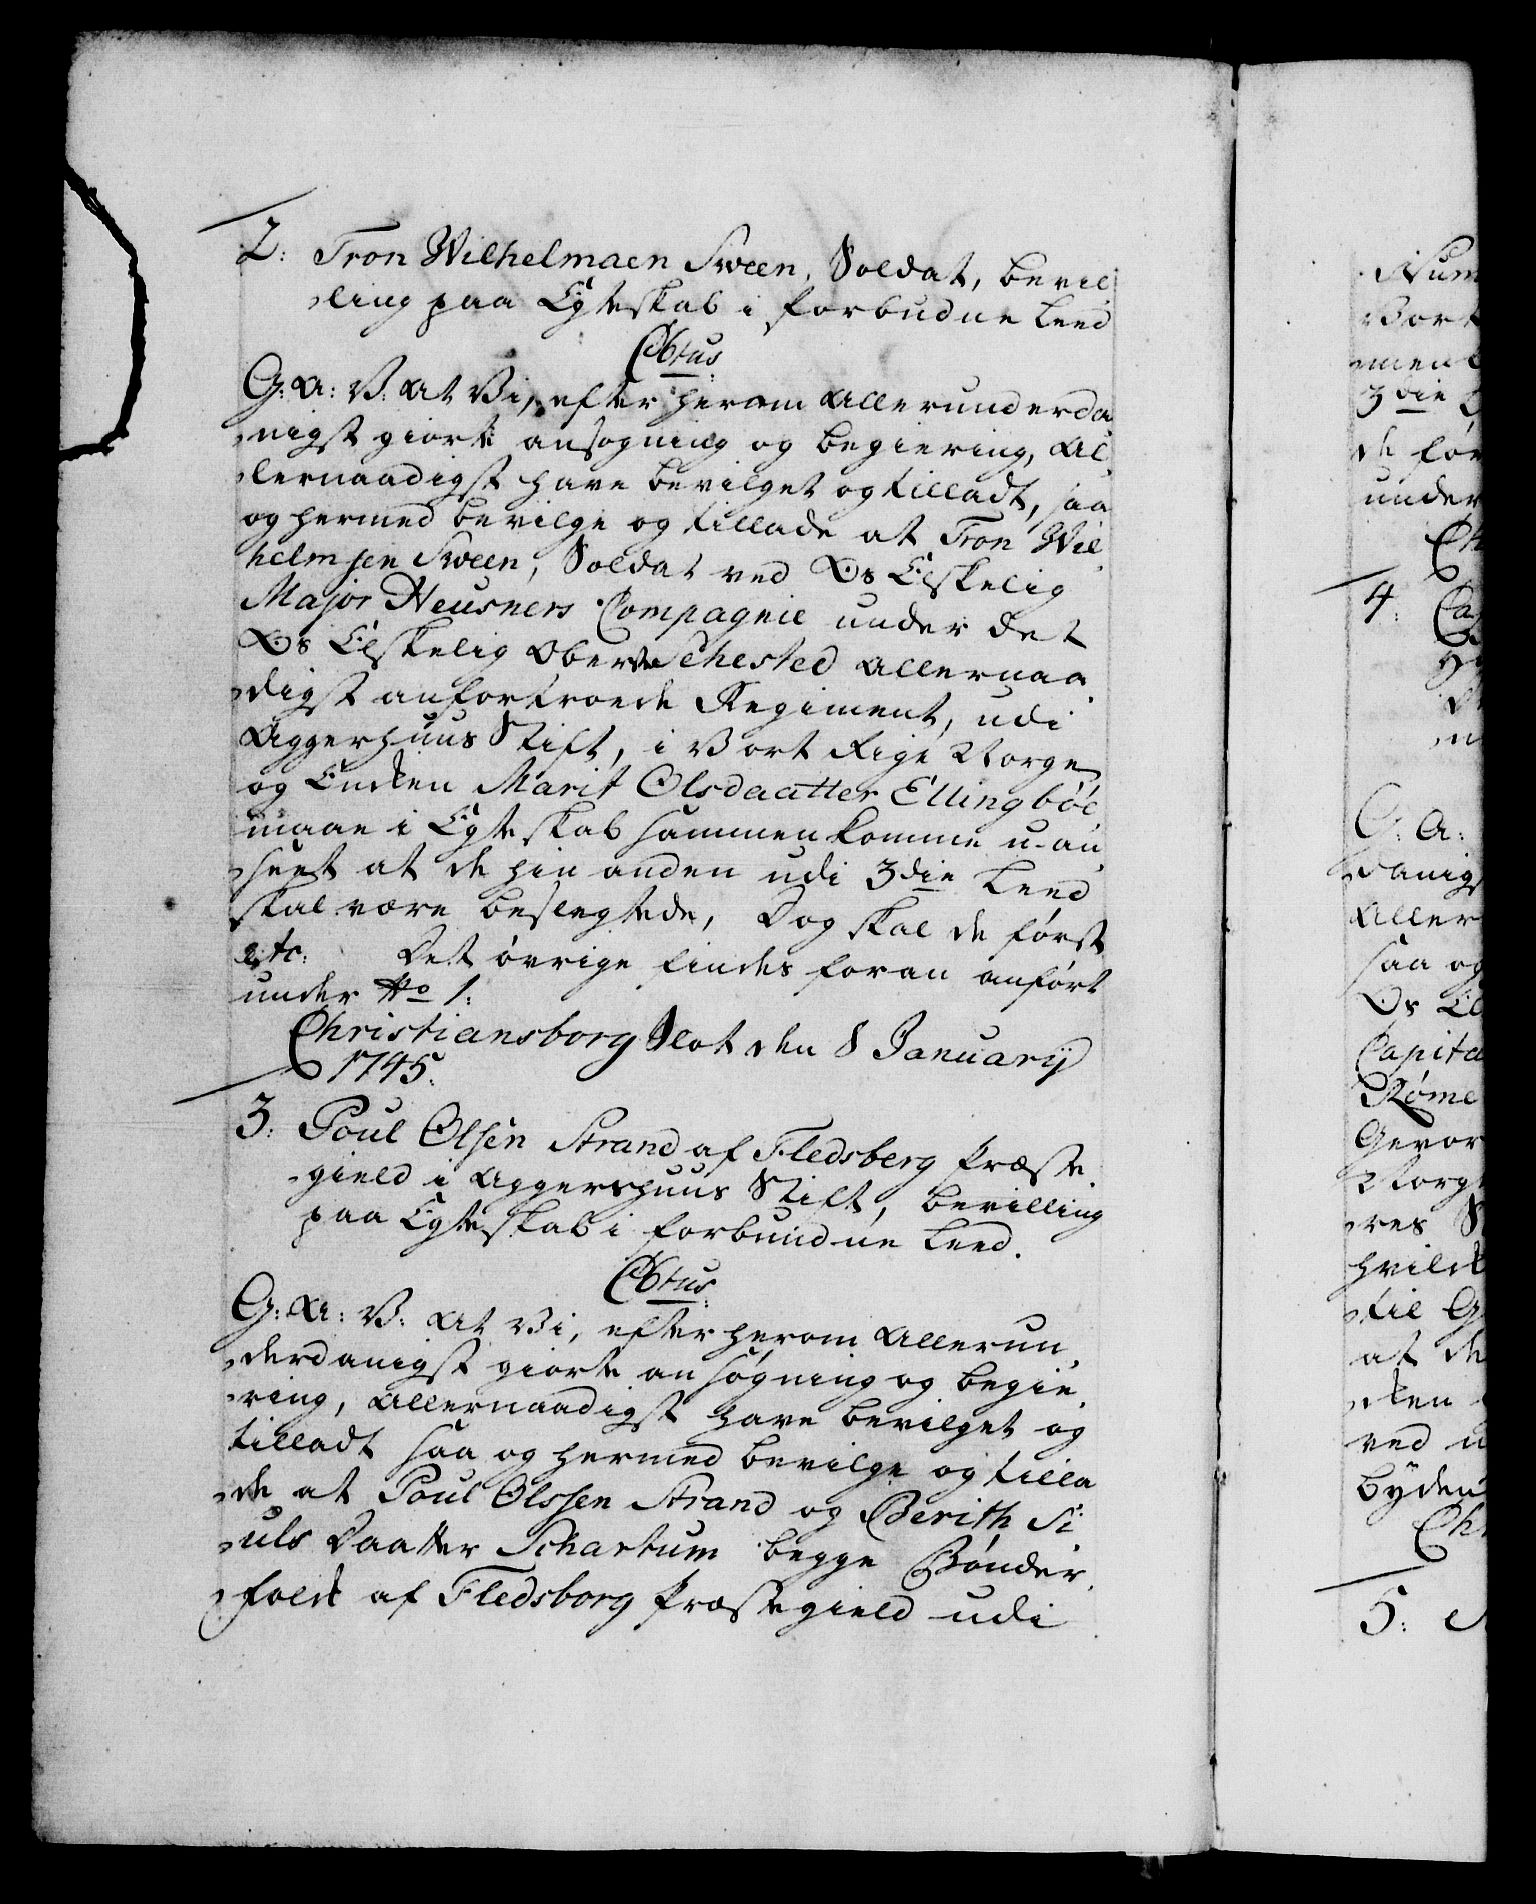 2: Tron Wilhelmaen Sween, Soldat, bevil
ling paa Egteskab i forbudne Leed
G: A: V: At Vi, efter herom Allerunderda
nigst giorte ansøgning og begiering, Al
lernaadigst have bevilget og tilladt, saa
og hermed bevilge og tillade at Tron Wil
helmsen Sween, Soldat ved Os Elskelig
Major Heusners Compagnie under det
Os Elskelig Oberste Sehested Allernaa
digst anfortroede Regiment, udi
Aggerhuus Stift, i Vort Rige Norge
og Encken Marit Olsdaatter Ellingböe
maae i Egteskab sammenkomme u-an
seet at de hin anden udi 3die Leed
skal være beslegtede, Dog skal de först
etc: Det övrige findes foran anfört
under No 1:
Christiansborg Slot den 8 Januarij
1745.
3: Poul Olsen Strand af Fledsberg Præste
gield i Aggershuus Stift, bevilling
paa Egteskab i forbundne Leed.
G: A: V: At Vi, efter herom Allerun
derdanigst giorte ansøgning og begie
ring, Allernaadigst have bevilget og
tilladt saa og hermed bevilge og tilla
de at Poul Olssen Strand og Berith Si
uls Daatter Schartum begge Bönder
folck af Fledsborg Præstegield udi
Num
Vort
men
3die
de för
under
Ch
4: Ca
G: A:
danigs
Aller
saa og
Os El
Capita
Röme
Gevor
Norg
res S
hvilck
til G
at de
cken
ved u
byden
Chr
5: